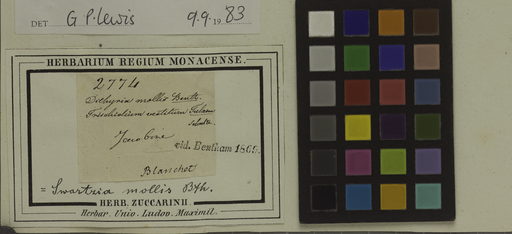 DET G.P. Lewis 9.9.1983
HERBARIUM REGIUM MONACENSE.
2774
mollis Benth.
Jacobina
vid. Bentham 1869.
Blanchet
= Swartzia mollis Bth.
HERB. ZUCCARINII
Herbar. Univ. Ludov. Maximil.